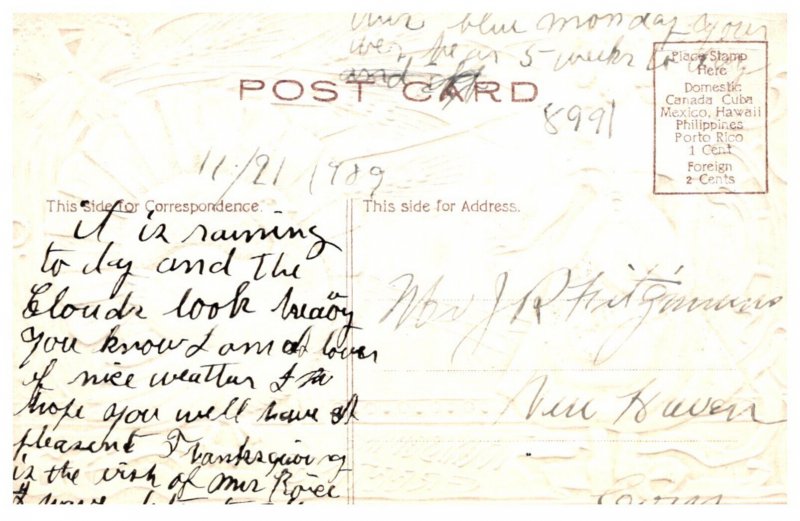 Mrs blue monday your
wer hear 5 weeks to day
and
POST CARD
8991
Place Stamp
Here
Domestic
Canada Cuba
Mexico, Hawaii
Philippines
Porto Rico
1 Cent
Foreign
2 Cents
11/21 1989
This side for Correspondence.
This side for Address.
it is raining
to day and the
Clouds look heavy
you know I am a lover
of nice weather I
hope you will have a
pleasent Thanksgiving
is the wish of Mrs
I have
Mrs J R Fitzsimmons
New Haven
Conn